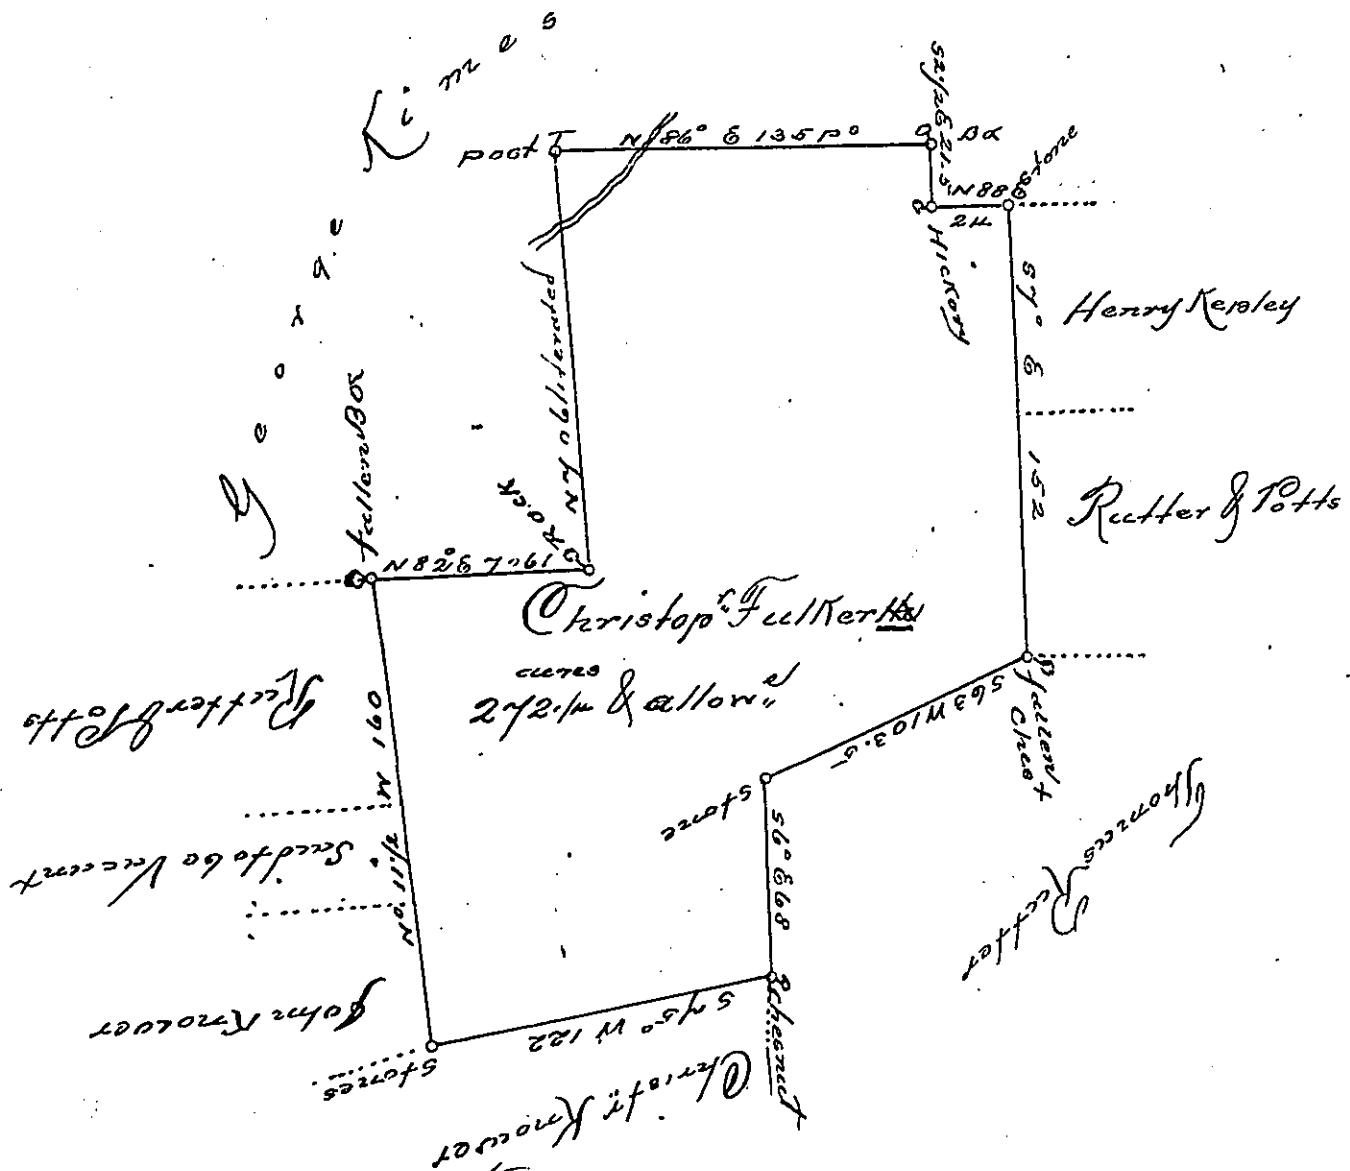 George Kimes
post
N 86° E 135 po
S 2 1/2 E 21.5
BO
N 88 E
24
Stone
Hickory
S 7° E
152
Henry Kepley
Rutter & Potts
N 7 W obliterated
Rock
N 82° E 79.1
fallen BO
Christop'r Fulker
272 1/4 acres & allow'e
fallen Chest
S 63 W 103.5
Stone
Thomas Rutter
S 6° E 68
Chesnut
S 75° W 122
Christ'r Knower
Stones
N 11 1/2 W 160
Rutter & Potts
Said to be Vacant
John Knower